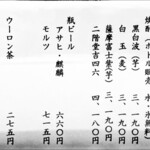 焼酎（ボトル販売 水、氷無料）
黒白波（芋） 三、一九〇円
白玉（麦） 三、一九〇円
薩摩富士（芋） 三、一九〇円
二階堂吉四六 四、一八〇円
瓶ビール
アサヒ・麒麟 六六〇円
モルツ 七一五円
ウーロン茶 二七五円